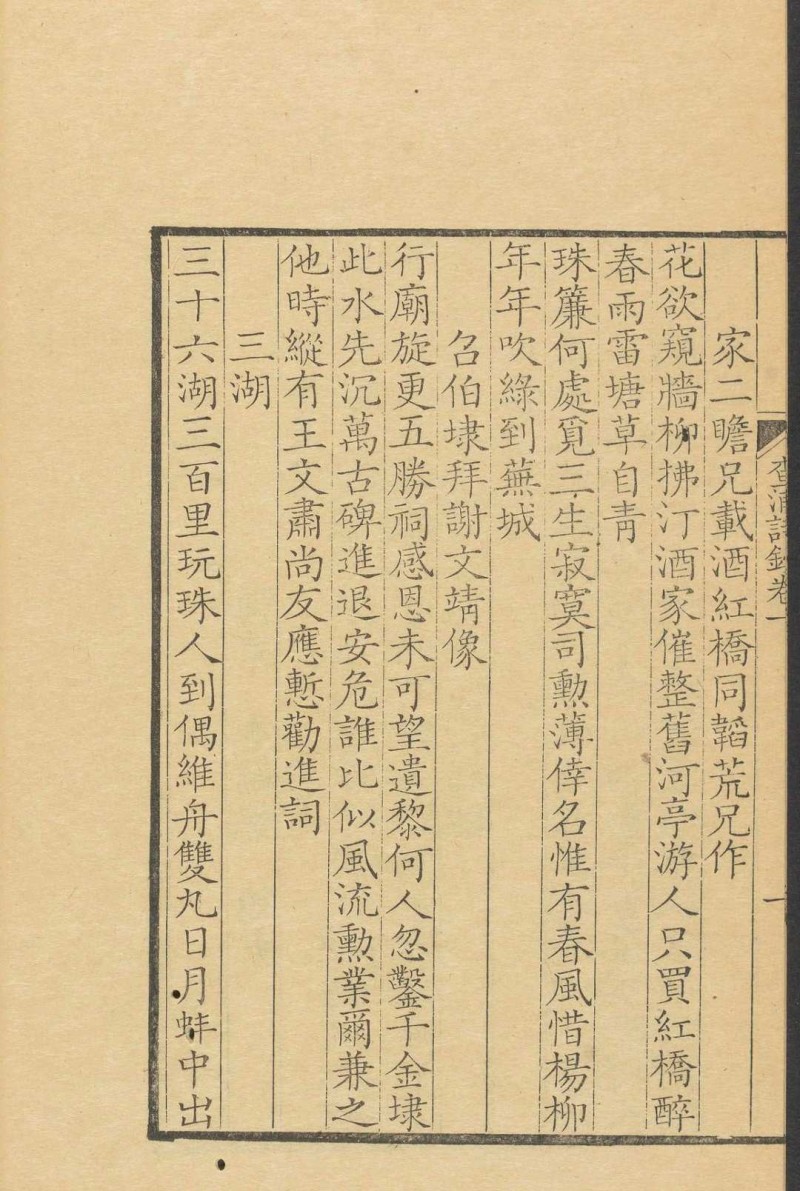 查浦詩鈔卷一
一
家二瞻兄載酒紅橋同韜荒兄作
花欲窺牆柳拂汀酒家催整舊河亭游人只買紅橋醉
春雨雷塘草自青
珠簾何處覓三生寂寞司勲薄倖名惟有春風惜楊柳
年年吹綠到蕪城
召伯埭拜謝文靖像
行廟旋更五勝祠感恩未可望遺黎何人忽鑿千金埭
此水先沉萬古碑進退安危誰比似風流勲業爾兼之
他時縱有王文肅尚友應慙勸進詞
三湖
三十六湖三百里玩珠人到偶維舟雙丸日月蚌中出